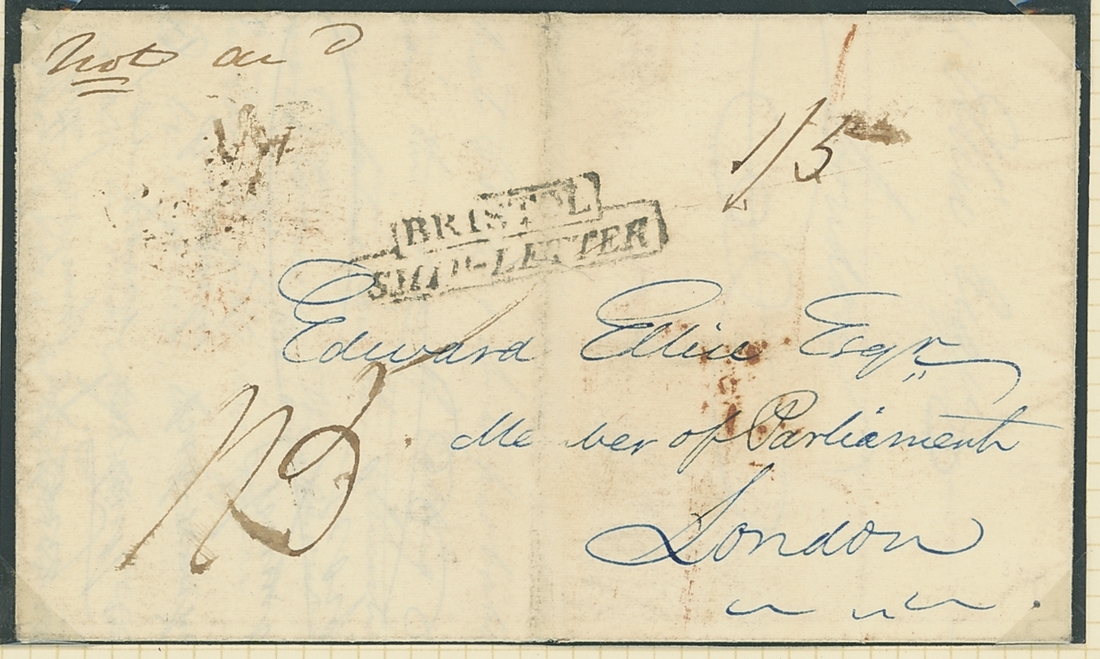 Not
1/5
BRISTOL
SHIP-LETTER
Edward Ellice Esqr
Me ber of Parliament
London